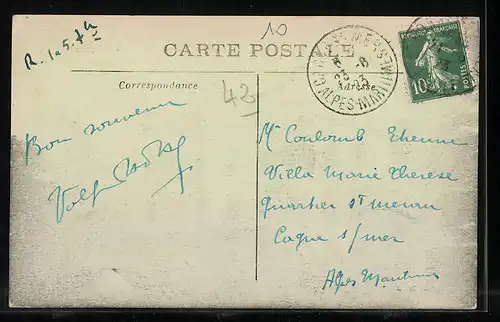 R. le 5.7h
10
CARTE POSTALE
Correspondance
Adresse
ALPES-MARITIMES
10
POSTES
43
Bon souvenir
Mr Coulomb Etienne
Villa Marie Therese
Quartier St
Cagne s/mer
Alpes Maritimes